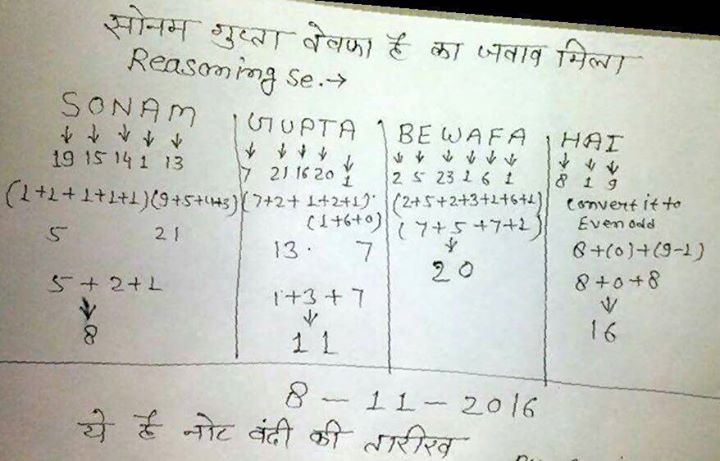 सोनम गुप्ता बेवफा है का जवाब मिला
Reasoning se.→
SONAM
↓ ↓ ↓ ↓ ↓
19 15 14 1 13
(1+1+1+1+1)(9+5+4+3)
5 21
5+2+1
↓
8
GUPTA
↓ ↓ ↓ ↓ ↓
7 21 16 20 1
(7+2+1+2+1)
(1+6+0)
13. 7
1+3+7
↓
11
BEWAFA
↓ ↓ ↓ ↓ ↓ ↓
2 5 23 1 6 1
(2+5+2+3+1+6+1)
(7+5+7+1)
↓
20
HAI
↓ ↓ ↓
8 1 9
Convert it to
Even odd
8+(0)+(9-1)
8+0+8
↓
16
8-11-2016
ये है नोट बंदी की तारीख